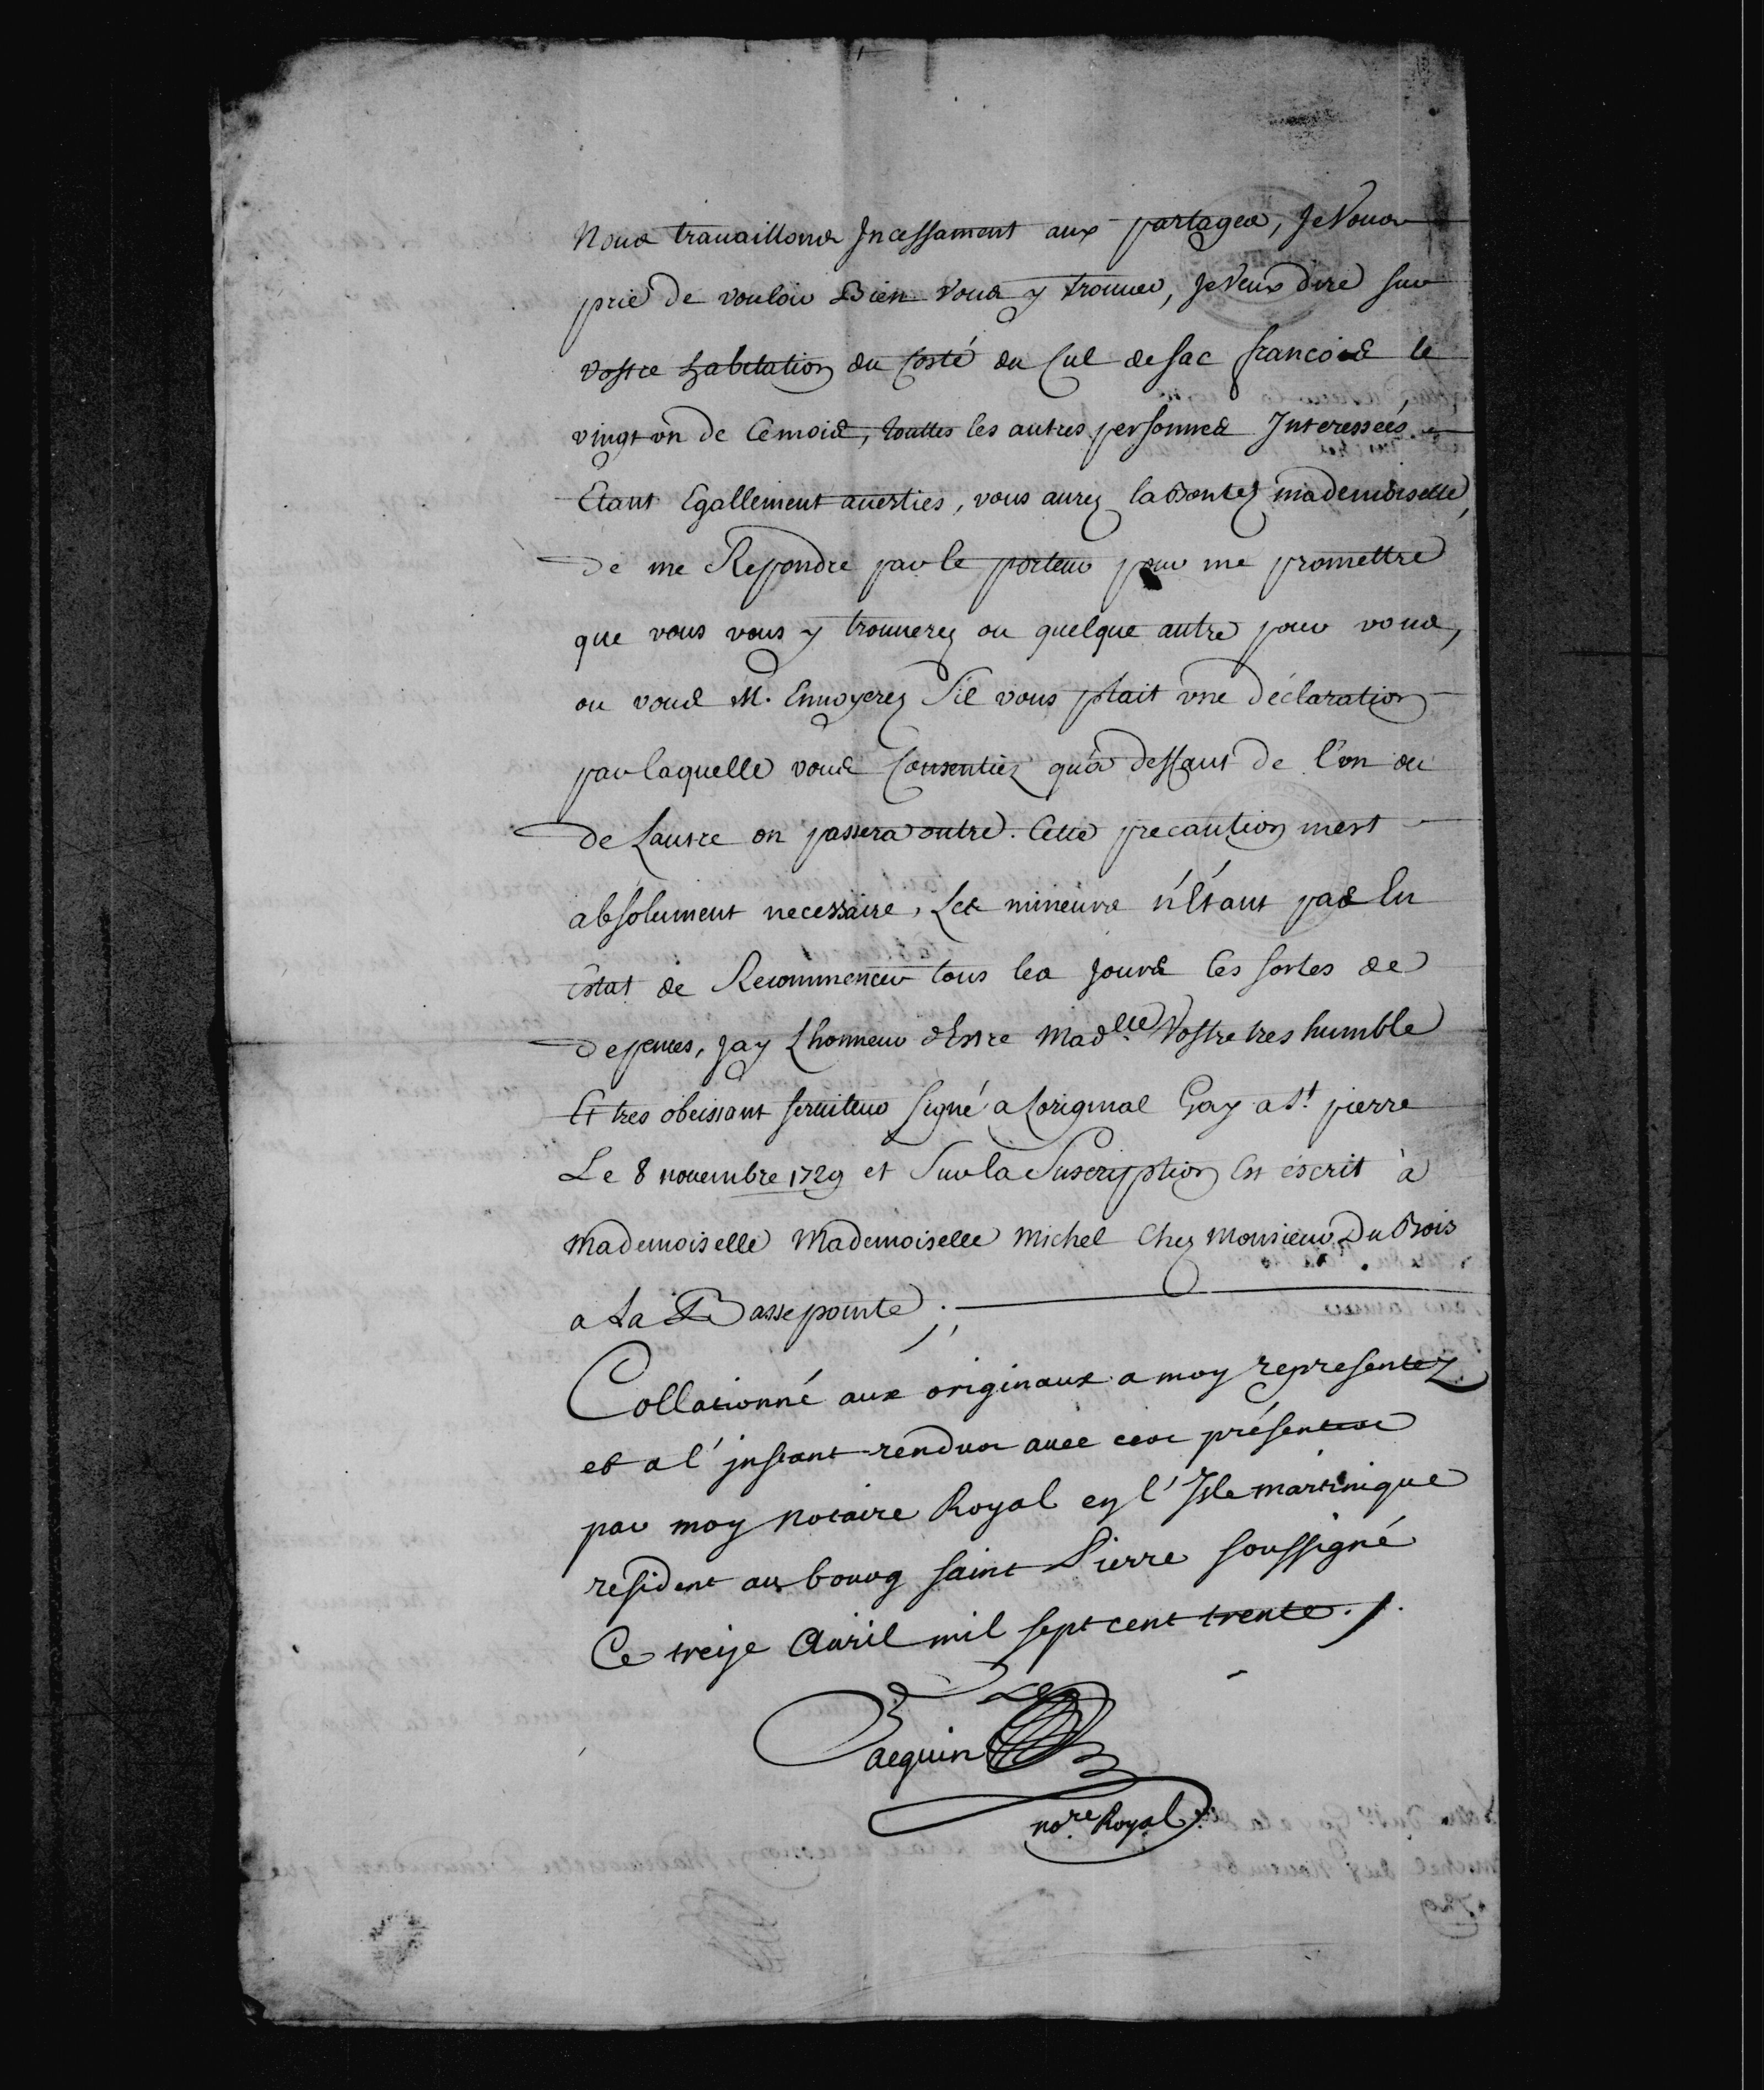 Nous trauaillons Jncessament aux partages, Je Vous
prie de vouloir Bien vous y trouuer, Je Veux dire sur
vostre habitation du Costé du Cul de sac francois le
vingt vn de Ce mois, touttes les autres personnes Interessées
Etant Egallement auerties, vous aurez la Bontez mademoiselle,
de me Repondre par le porteur pour me promettre
que vous vous y trouuerez ou quelque autre pour vous,
ou vous M. Enuoyerez S'il vous plait vne déclaration
par laquelle vous Consentiez qu'a deffaut de l'vn ou
de Lautre on passera outre. Cette precaution mest
absolument necessaire, Les mineurs n'étant pas En
Estat de Recommencer tous les jours Ces sortes de
depences, Jay Lhonneur d'Estre Mad.lle Vostre tres humble
Et tres obeissant seruiteur signé a Loriginal Gay a St. pierre
Le 8 nouembre 1729 et Sur la Suscription Est éscrit à
Mademoiselle Mademoiselle Michel Chez Monsieur Du Bois
a La Basse pointe ;
Collationné aux originaux a moy representez
et a l'jnstant rendus auec ces présentes
par moy Notaire Royal en l'Isle martinique
resident au bourg saint Pierre soussigné
Ce treize Auril mil sept cent trente ./.
no.re Royal